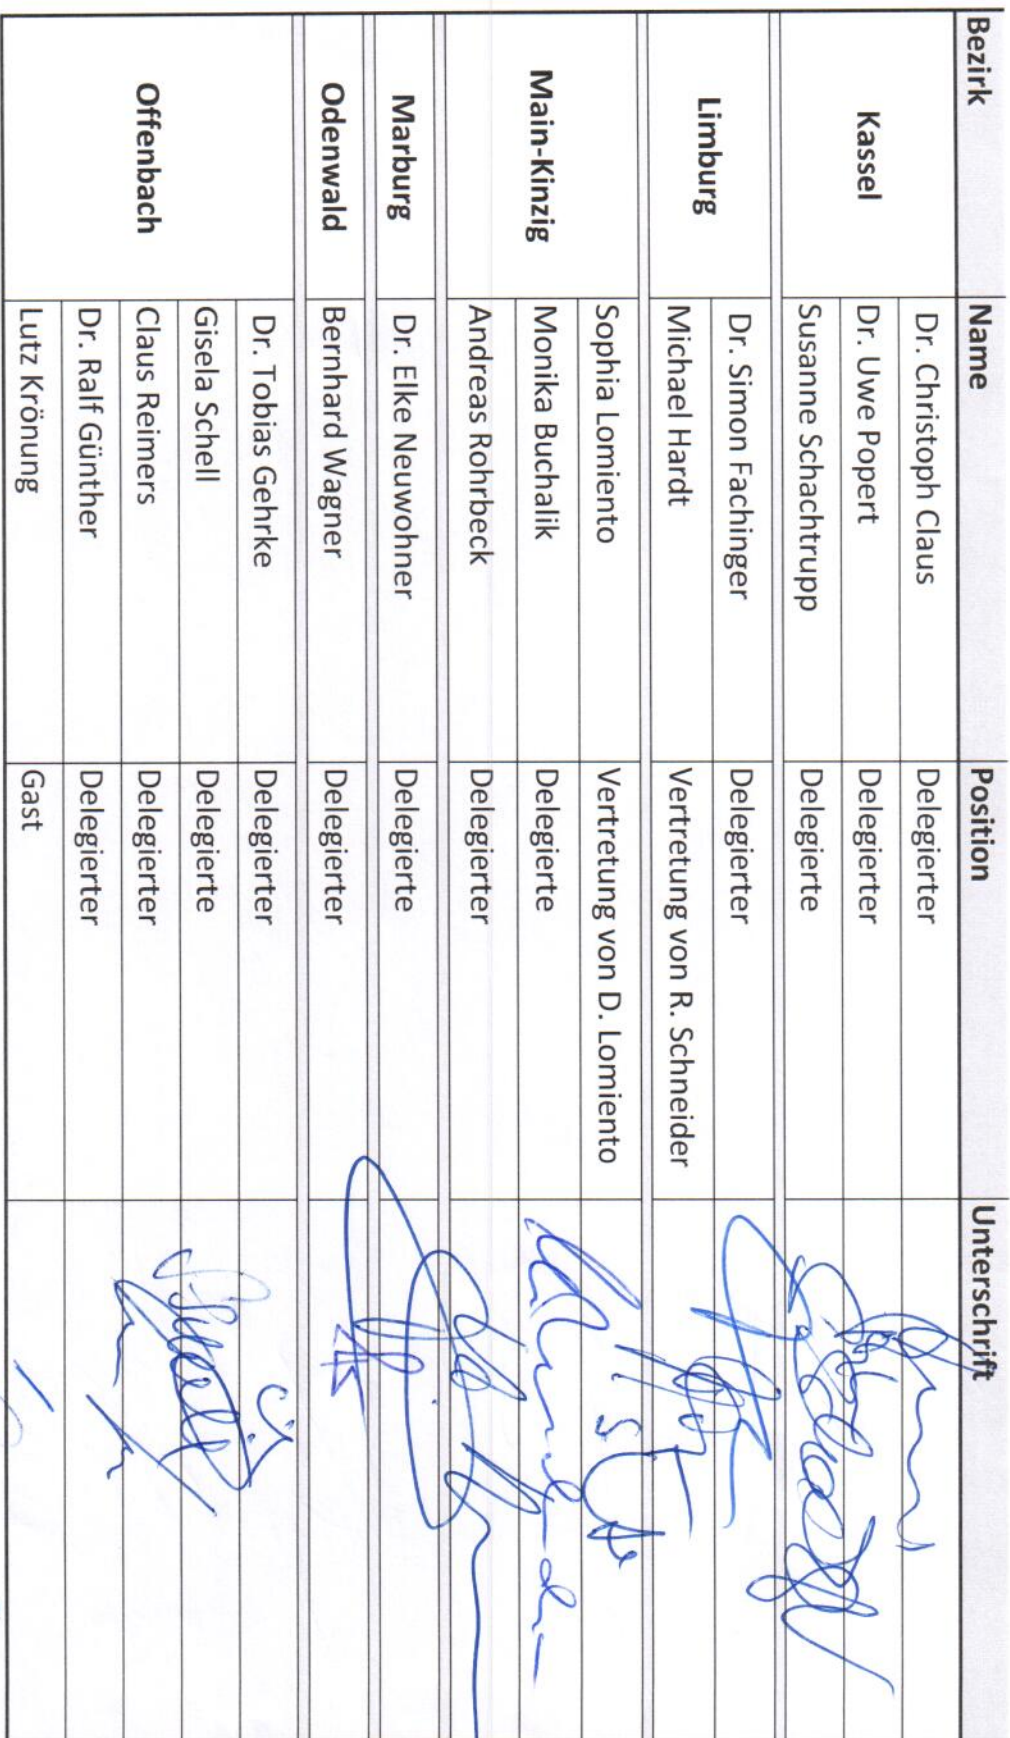 Bezirk Name Position Unterschrift
Kassel
Dr. Christoph Claus Delegierter
Dr. Uwe Popert Delegierter
Susanne Schachtrupp Delegierte
Limburg
Dr. Simon Fachinger Delegierter
Michael Hardt Vertretung von R. Schneider
Main-Kinzig
Sophia Lomiento Vertretung von D. Lomiento
Monika Buchalik Delegierte
Andreas Rohrbeck Delegierter
Marburg Dr. Elke Neuwohner Delegierte
Odenwald Bernhard Wagner Delegierter
Offenbach
Dr. Tobias Gehrke Delegierter
Gisela Schell Delegierte
Claus Reimers Delegierter
Dr. Ralf Günther Delegierter
Lutz Krönung Gast